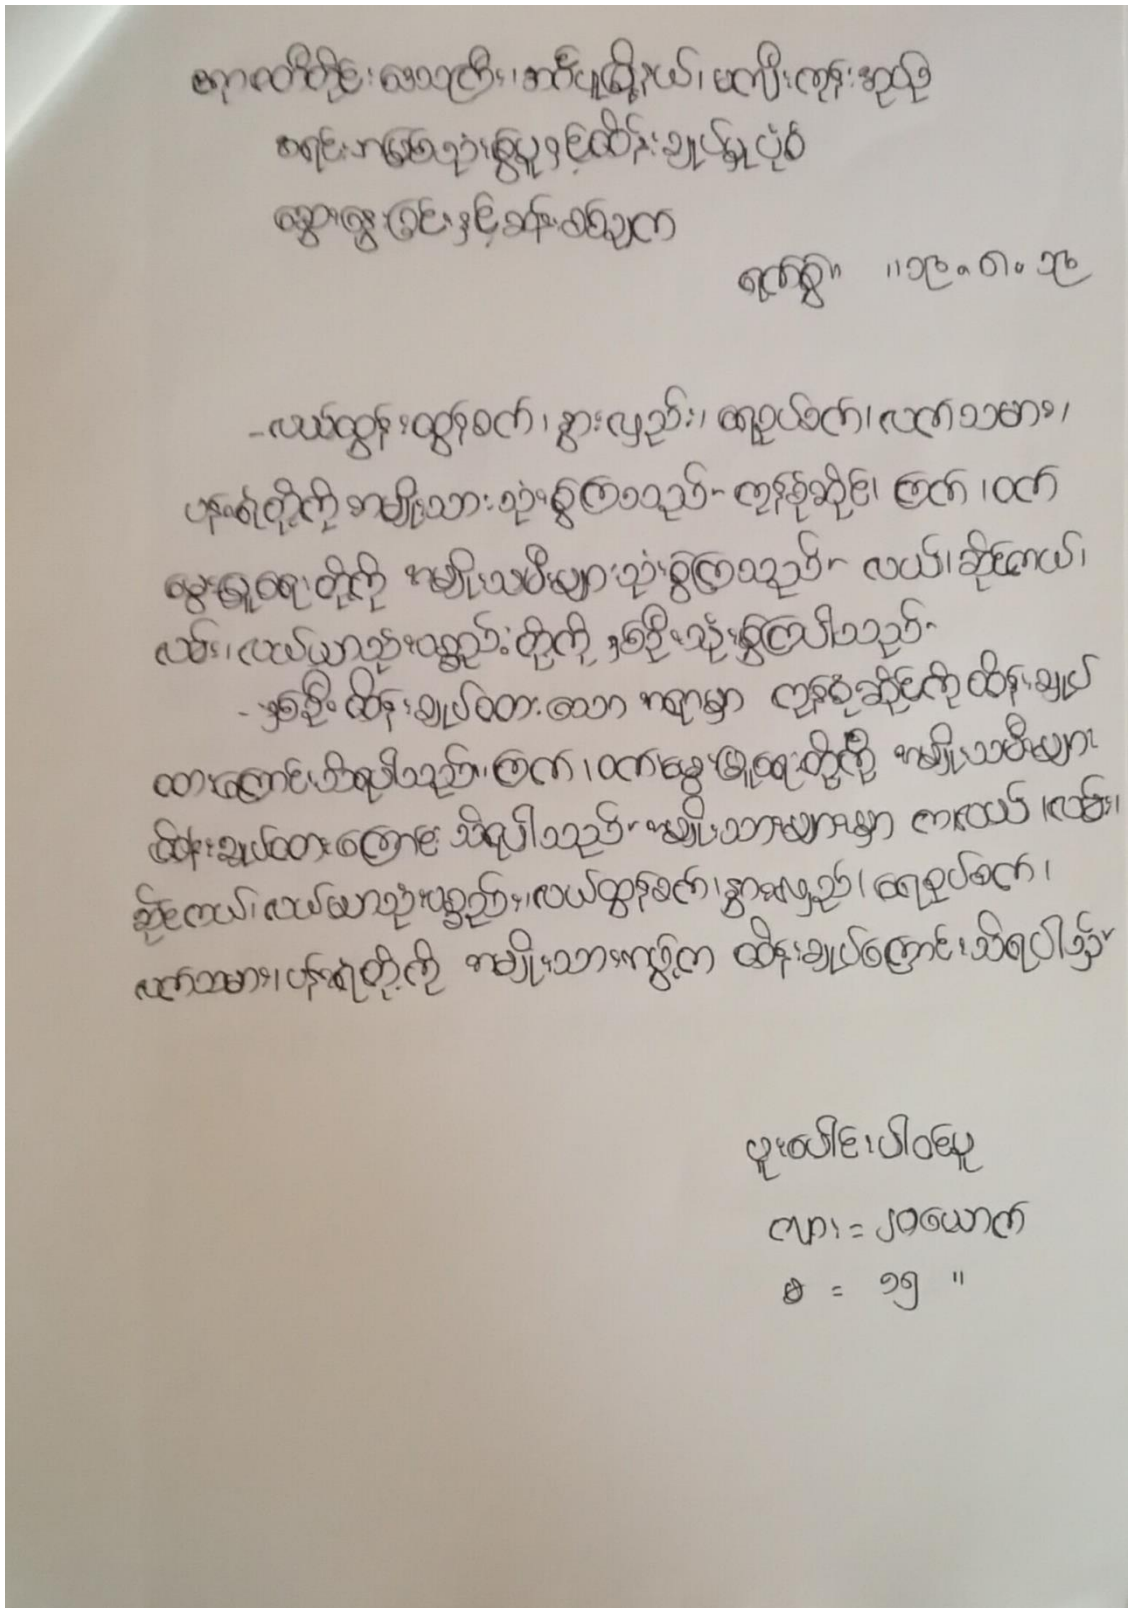 ဧရာဝတီတိုင်းဒေသကြီး၊ အင်္ဂပူမြို့နယ်၊ မကျီးကုန်းအုပ်စု
အရင်းအမြစ်သုံးစွဲမှုနှင့်ထိန်းချုပ်မှုပုံစံ
ဆွေးနွေးခြင်းနှင့်ဆန်းစစ်ချက်
ရက်စွဲ။ ။၁၉.၈.၁၉
- လယ်ထွန်းထွန်စက်၊ နွားလှည်း၊ ရေစုပ်စက်၊ လက်သမား၊
ပန်းရံတို့ကို အမျိုးသားသုံးစွဲကြသည်။ ကုန်စုံဆိုင်၊ ကြက်၊ ဝက်
မွေးမြူရေးတို့ကို အမျိုးသမီးများသုံးစွဲကြသည်။ လယ်၊ ဆိုင်ကယ်၊
လမ်း၊ လယ်ယာသုံးပစ္စည်းတို့ကို နှစ်ဦးသုံးစွဲကြပါသည်။
- နှစ်ဦးထိန်းချုပ်ထားသော အရာမှာ ကုန်စုံဆိုင်ကိုထိန်းချုပ်
ထားကြောင်းသိရပါသည်။ ကြက်၊ ဝက်မွေးမြူရေးတို့ကို အမျိုးသမီးများ
ထိန်းချုပ်ထားကြောင်း သိရပါသည်။ အမျိုးသားများမှာ လယ်၊ လမ်း၊
ဆိုင်ကယ်၊ လယ်ယာသုံးပစ္စည်း၊ လယ်ထွန်စက်၊ နွားလှည်း၊ ရေစုပ်စက်၊
လက်သမား၊ ပန်းရံတို့ကို အမျိုးသားကထိန်းချုပ်ကြောင်းသိရပါသည်။
ပူးပေါင်းပါဝင်မှု
ကျား = ၂၀ယောက်
မ = ၁၅ "